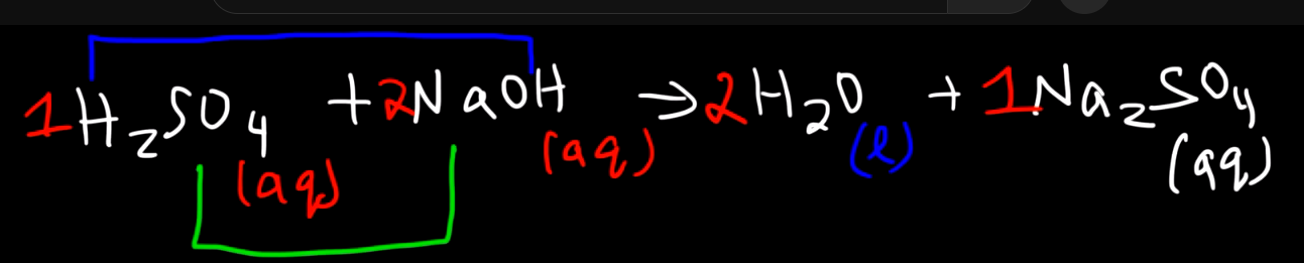 1H₂SO₄(aq) + 2NaOH(aq) → 2H₂O(l) + 1Na₂SO₄(aq)